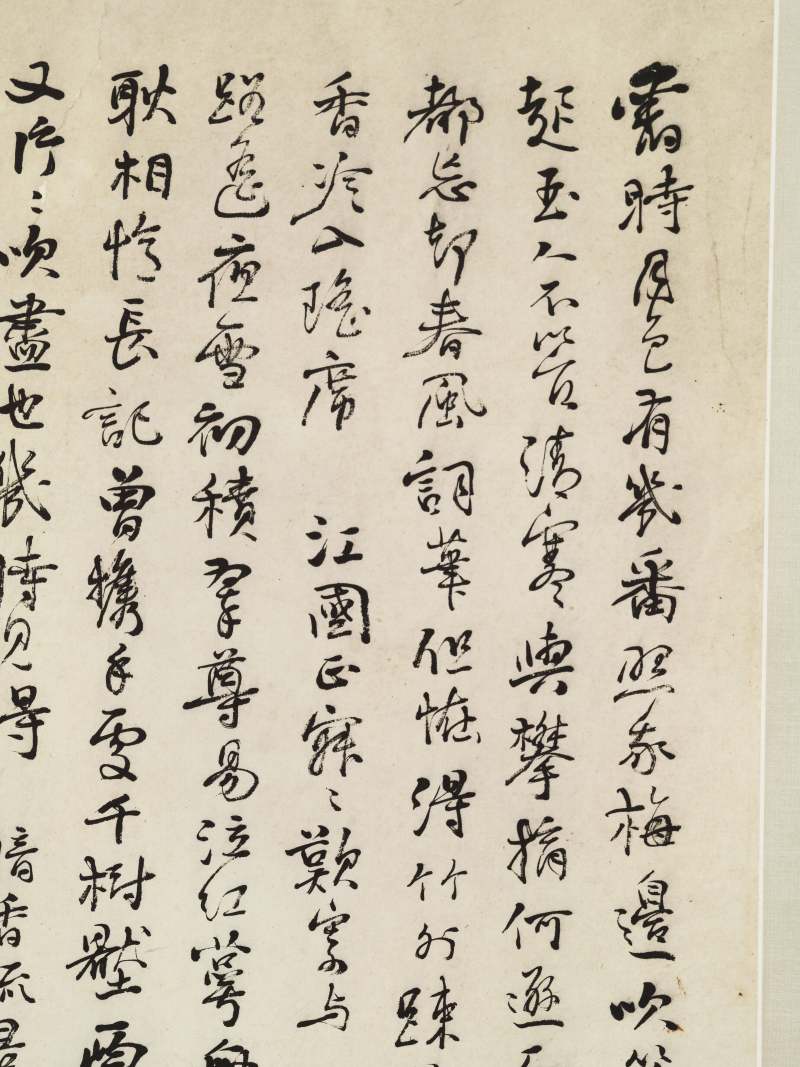 舊時月色有幾番照我梅邊吹
起玉人不管清寒與攀摘何遜
都忘却春風詞筆但怪得竹外疎
香冷入瑤席 江國正寂〻歎寄与
路遙夜雪初積翠尊易泣紅萼無
耿相憶長記曾攜手處千樹壓西
又片〻吹盡也幾時見得 暗香疏